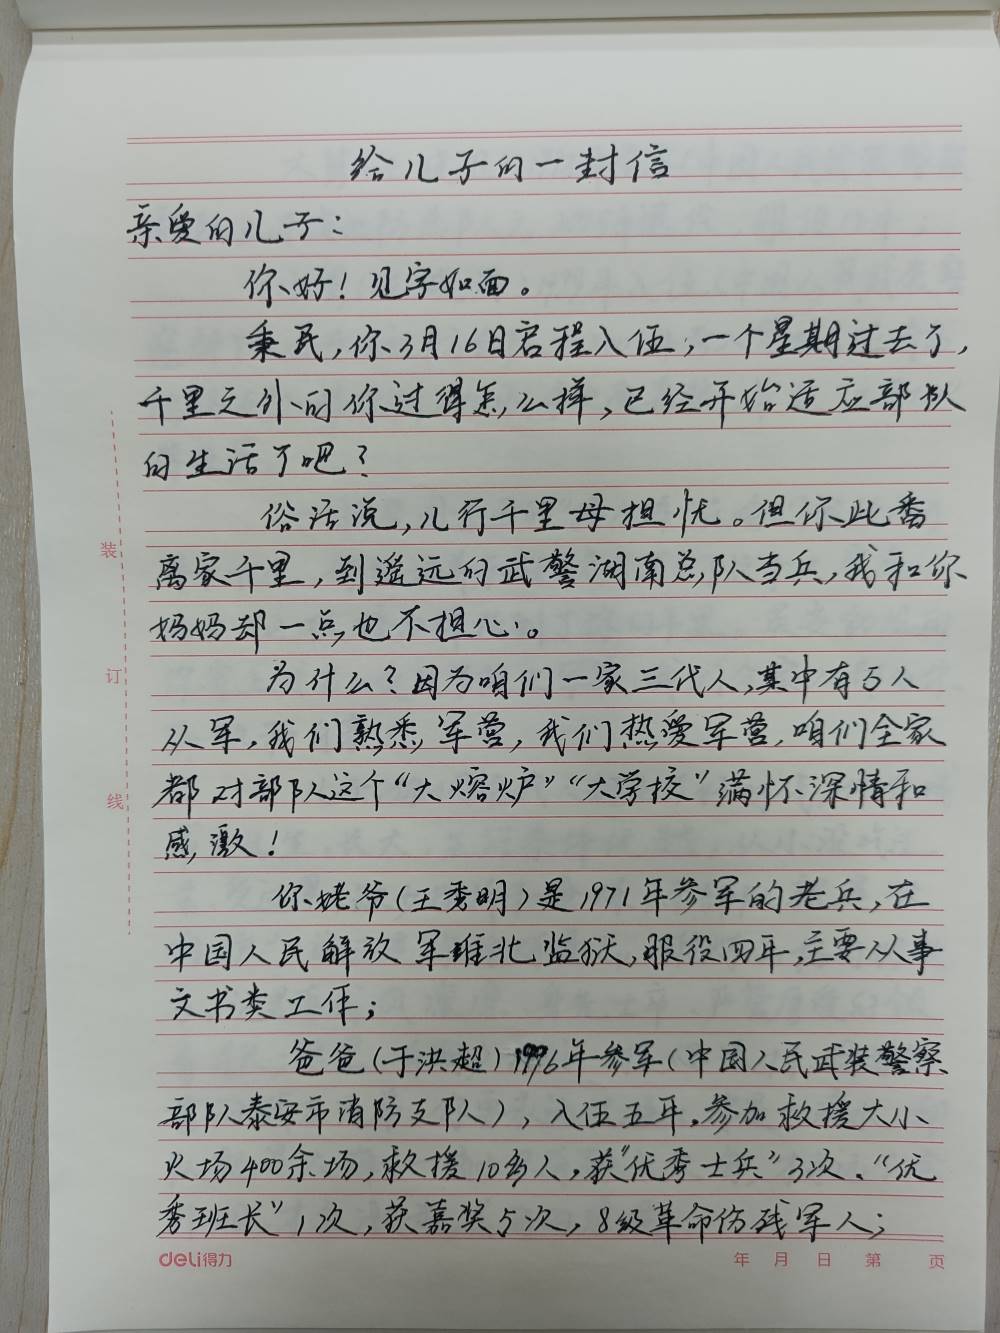 给儿子的一封信
亲爱的儿子：
你好！见字如面。
秉民，你3月16日启程入伍，一个星期过去了，
千里之外的你过得怎么样，已经开始适应部队
的生活了吧？
俗话说，儿行千里母担忧。但你此番
离家千里，到遥远的武警湖南总队当兵，我和你
妈妈却一点也不担心。
为什么？因为咱们一家三代人，其中有5人
从军，我们熟悉军营，我们热爱军营，咱们全家
都对部队这个“大熔炉”“大学校”满怀深情和
感激！
你姥爷（王秀明）是1971年参军的老兵，在
中国人民解放军潍北监狱，服役四年，主要从事
文书类工作；
爸爸（于洪超）1996年参军（中国人民武装警察
部队泰安市消防支队），入伍五年，参加救援大小
火场400余场，救援10多人，获“优秀士兵”3次、“优
秀班长”1次，获嘉奖5次，8级革命伤残军人；
装
订
线
deli得力
年 月 日 第 页